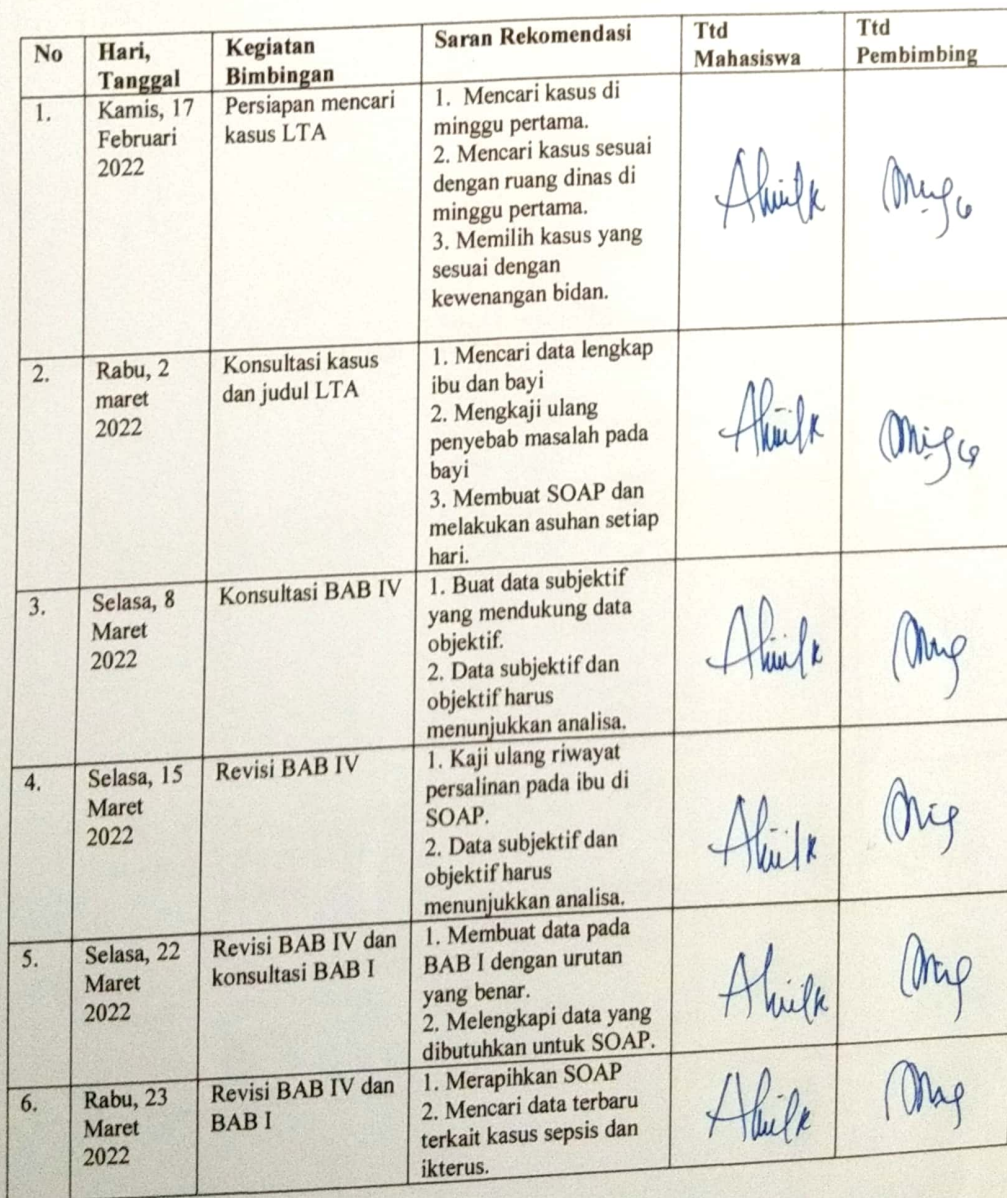 No
Hari,
Tanggal
Kegiatan
Bimbingan
Saran Rekomendasi
Ttd
Mahasiswa
Ttd
Pembimbing
1.
Kamis, 17
Februari
2022
Persiapan mencari
kasus LTA
1. Mencari kasus di
minggu pertama.
2. Mencari kasus sesuai
dengan ruang dinas di
minggu pertama.
3. Memilih kasus yang
sesuai dengan
kewenangan bidan.
2.
Rabu, 2
maret
2022
Konsultasi kasus
dan judul LTA
1. Mencari data lengkap
ibu dan bayi
2. Mengkaji ulang
penyebab masalah pada
bayi
3. Membuat SOAP dan
melakukan asuhan setiap
hari.
3.
Selasa, 8
Maret
2022
Konsultasi BAB IV
1. Buat data subjektif
yang mendukung data
objektif.
2. Data subjektif dan
objektif harus
menunjukkan analisa.
4.
Selasa, 15
Maret
2022
Revisi BAB IV
1. Kaji ulang riwayat
persalinan pada ibu di
SOAP.
2. Data subjektif dan
objektif harus
menunjukkan analisa.
5.
Selasa, 22
Maret
2022
Revisi BAB IV dan
konsultasi BAB I
1. Membuat data pada
BAB I dengan urutan
yang benar.
2. Melengkapi data yang
dibutuhkan untuk SOAP.
6.
Rabu, 23
Maret
2022
Revisi BAB IV dan
BAB I
1. Merapihkan SOAP
2. Mencari data terbaru
terkait kasus sepsis dan
ikterus.